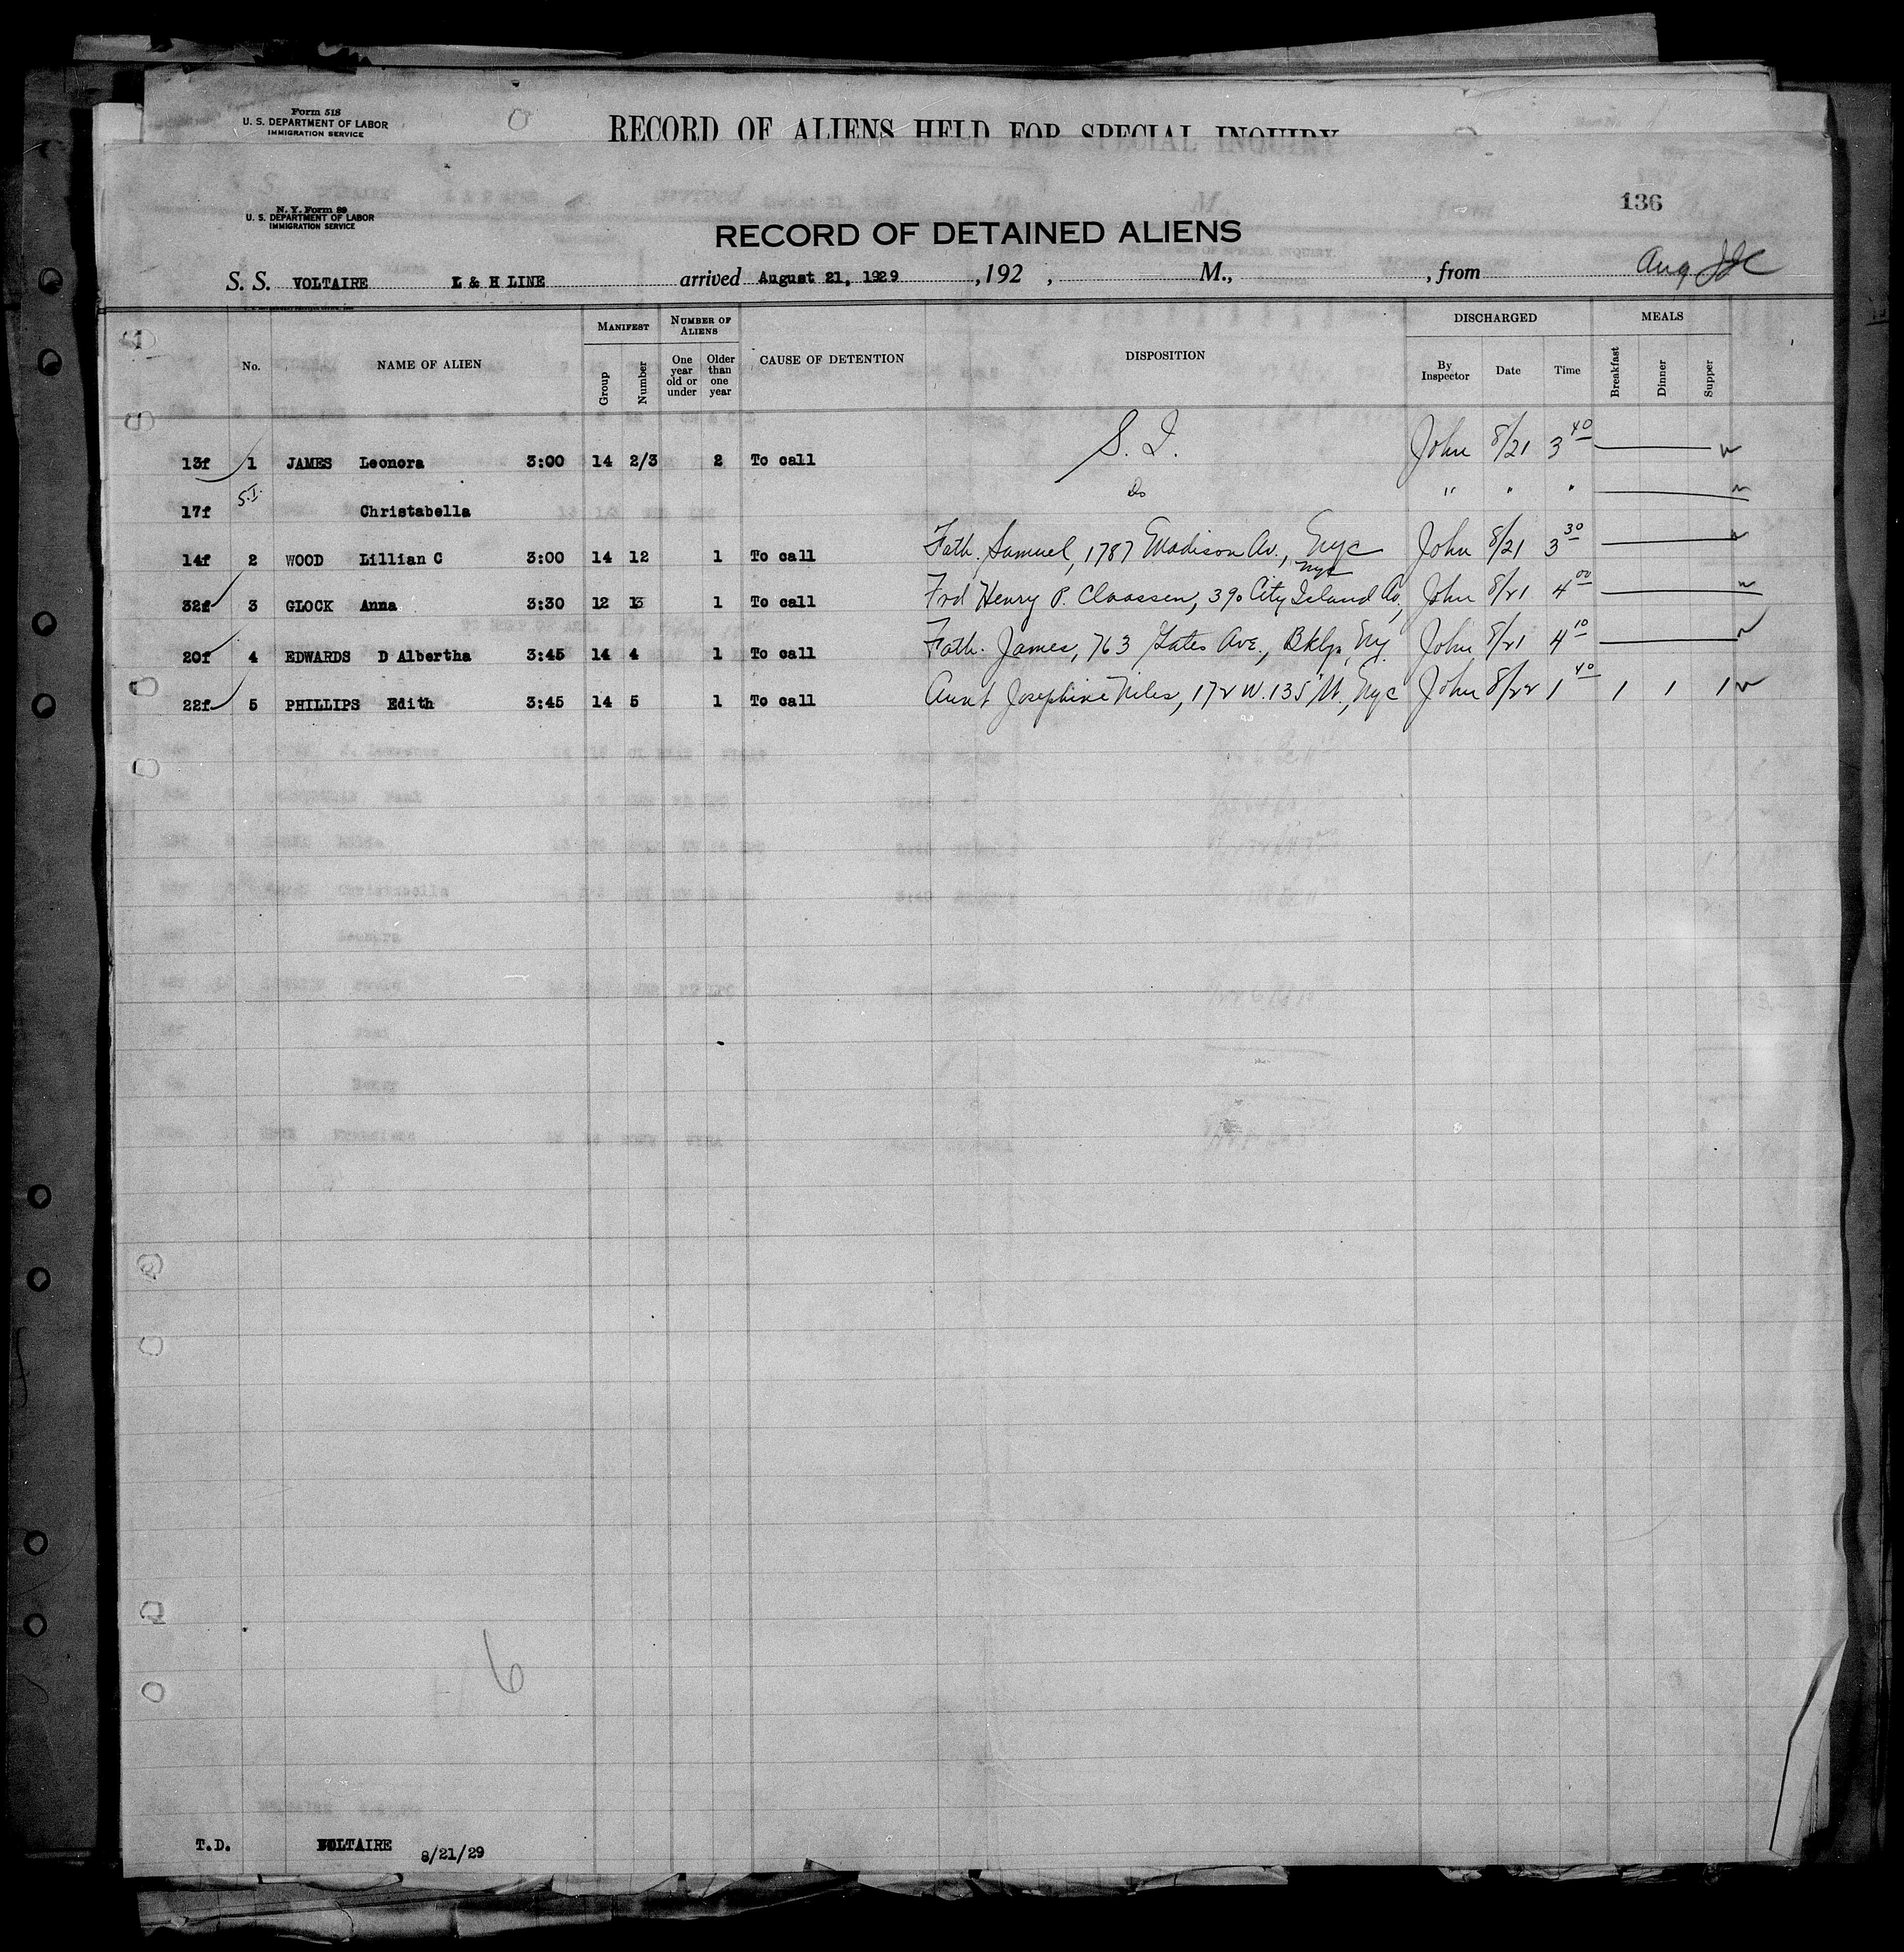 Form 518
U. S. DEPARTMENT OF LABOR
IMMIGRATION SERVICE
RECORD OF ALIENS HELD FOR SPECIAL INQUIRY
N. Y. Form 89
U. S. DEPARTMENT OF LABOR
IMMIGRATION SERVICE
136
RECORD OF DETAINED ALIENS
S. S. VOLTAIRE L & H LINE arrived August 21, 1929 , 192 , M., , from Aug
No. NAME OF ALIEN MANIFEST Group Number NUMBER OF ALIENS One year old or under Older than one year CAUSE OF DETENTION DISPOSITION DISCHARGED By Inspector Date Time MEALS Breakfast Dinner Supper
13f 1 JAMES Leonora 3:00 14 2/3 2 To call S. I. John 8/21 3 40
17f S.I. Christabella Do " " "
14f 2 WOOD Lillian C 3:00 14 12 1 To call Fath. Samuel, 1787 Madison Av., Nyc John 8/21 3 30
32f 3 GLOCK Anna 3:30 12 13 1 To call Frd Henry P. Claassen, 390 City Island Av, Nyc John 8/21 4 00
20f 4 EDWARDS D Albertha 3:45 14 4 1 To call Fath. James, 763 Gates Ave., Bklyn, Ny John 8/21 4 10
22f 5 PHILLIPS Edith 3:45 14 5 1 To call Aunt Josephine Niles, 172 W. 135 St., Nyc John 8/22 1 40 1 1 1
6
T.D. VOLTAIRE 8/21/29